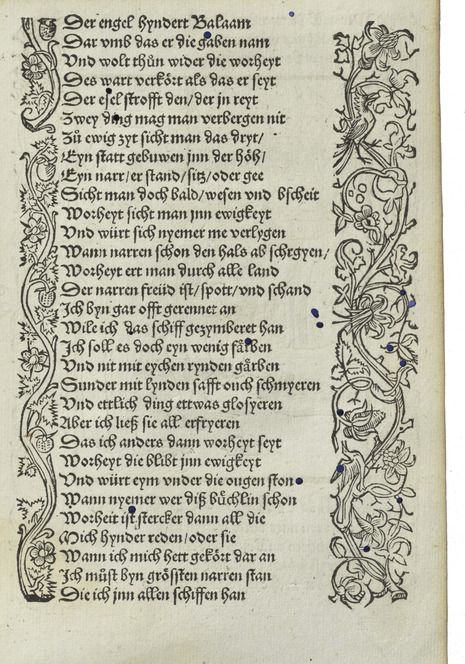 Der engel hyndert Balaam
Dar vmb das er die gaben nam
Vnd wolt thůn wider die worheyt
Des wart verkört als das er seyt
Der esel strofft den/der jn reyt
Zwey ding mag man verbergen nit
Zů ewig zyt sicht man das dryt/
Eyn statt gebuwen jnn der höh/
Eyn narr/er stand/sitz/oder gee
Sicht man doch bald/wesen vnd bscheit
Worheyt sicht man jnn ewigkeyt
Vnd würt sich nyemer me verlygen
Wann narren schon den hals ab schrgyen/
Worheyt ert man durch alle land
Der narren freüd ist/spott/vnd schand
Jch byn gar offt gerennet an
Wile ich das schiff gezymberet han
Jch soll es doch eyn wenig färben
Vnd nit mit eychen rynden gärben
Sunder mit lynden safft ouch schmyeren
Vnd ettlich ding ettwas glosyeren
Aber ich ließ sie all erfryeren
Das ich anders dann worheyt seyt
Worheyt die blibt jnn ewigkeyt
Vnd würt eym vnder die ougen ston
Wann nyemer wer diß büchlin schon
Worheit ist stercker dann all die
Mich hynder reden/oder sie
Wann ich mich hett gekört dar an
Jch můst byn grössten narren stan
Die ich jnn allen schiffen han